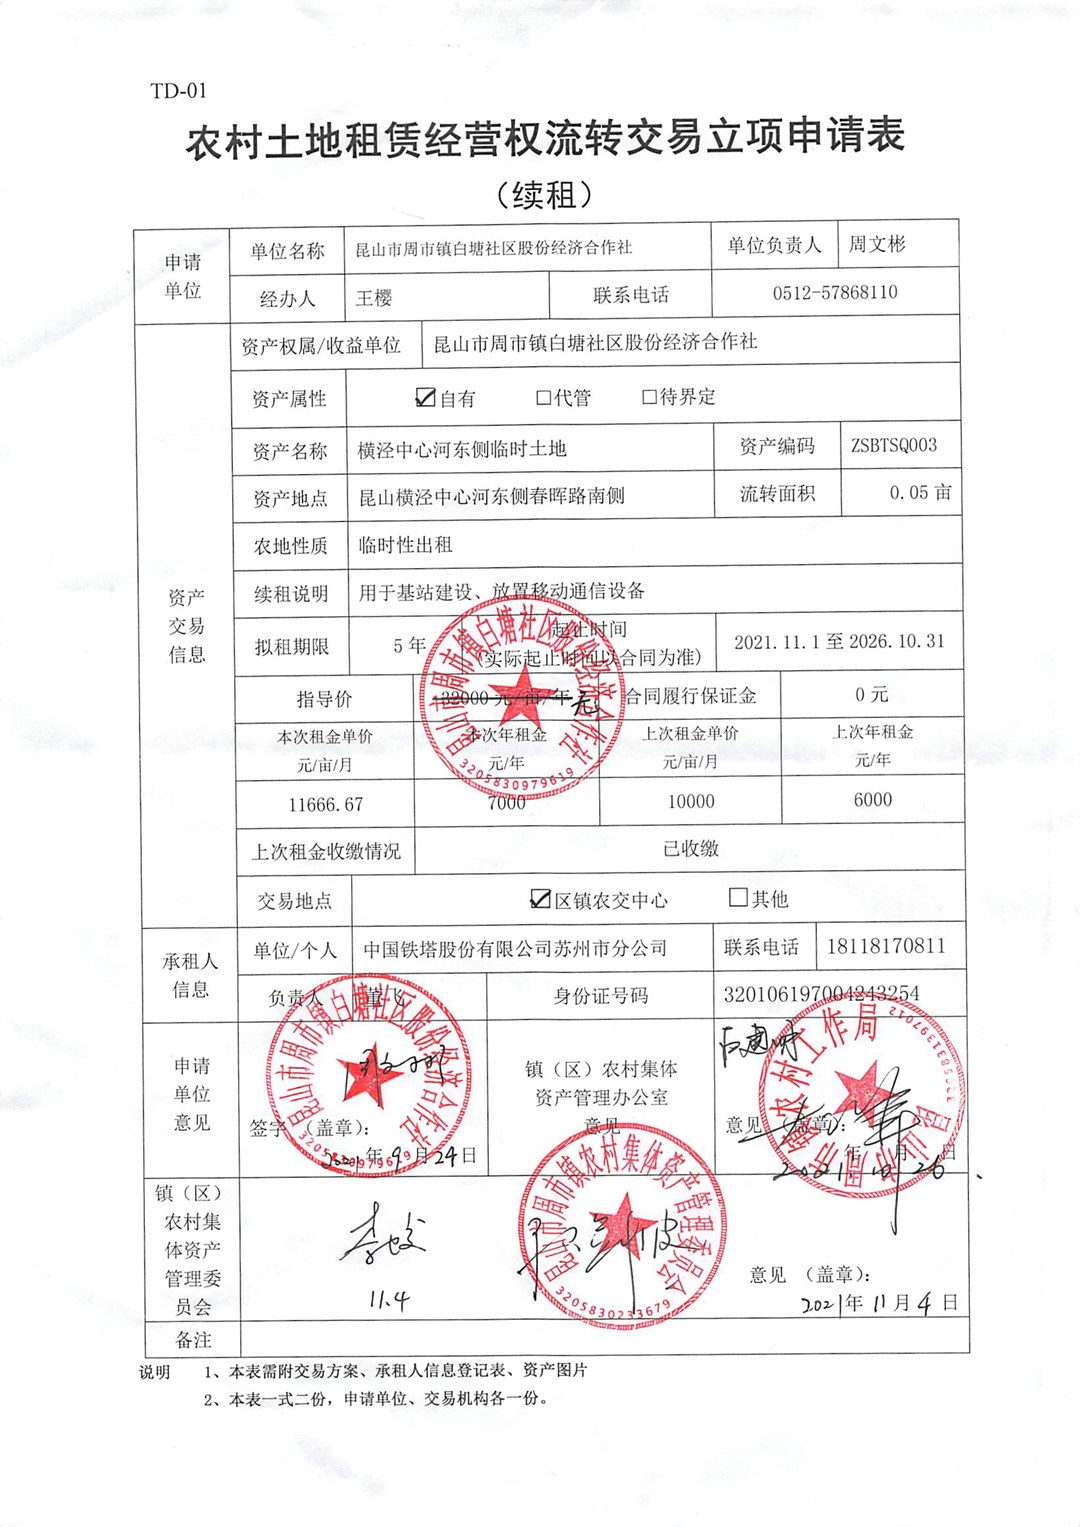 TD-01
农村土地租赁经营权流转交易立项申请表
（续租）
申请单位 单位名称 昆山市周市镇白塘社区股份经济合作社 单位负责人 周文彬
经办人 王樱 联系电话 0512-57868110
资产交易信息
资产权属/收益单位 昆山市周市镇白塘社区股份经济合作社
资产属性 ☑自有 □代管 □待界定
资产名称 横泾中心河东侧临时土地 资产编码 ZSBTSQ003
资产地点 昆山横泾中心河东侧春晖路南侧 流转面积 0.05 亩
农地性质 临时性出租
续租说明 用于基站建设、放置移动通信设备
拟租期限 5 年 起止时间 (实际起止时间以合同为准) 2021.11.1 至 2026.10.31
指导价 32000 元/亩/年 无 合同履行保证金 0 元
本次租金单价 元/亩/月 本次年租金 元/年 上次租金单价 元/亩/月 上次年租金 元/年
11666.67 7000 10000 6000
上次租金收缴情况 已收缴
交易地点 ☑区镇农交中心 □其他
承租人信息 单位/个人 中国铁塔股份有限公司苏州市分公司 联系电话 18118170811
负责人 董飞 身份证号码 320106197004243254
申请单位意见 签字 （盖章）： 2021年9月24日
昆山市周市镇白塘社区股份经济合作社
3205830979619
镇（区）农村集体资产管理办公室意见 意见 （盖章）： 2021年10月26日
昆山市周市镇农村工作局
镇（区）农村集体资产管理委员会
李蛟
11.4
意见 （盖章）：
2021年11月4日
昆山市周市镇农村集体资产管理委员会
3205830233679
备注
说明 1、本表需附交易方案、承租人信息登记表、资产图片
2、本表一式二份，申请单位、交易机构各一份。